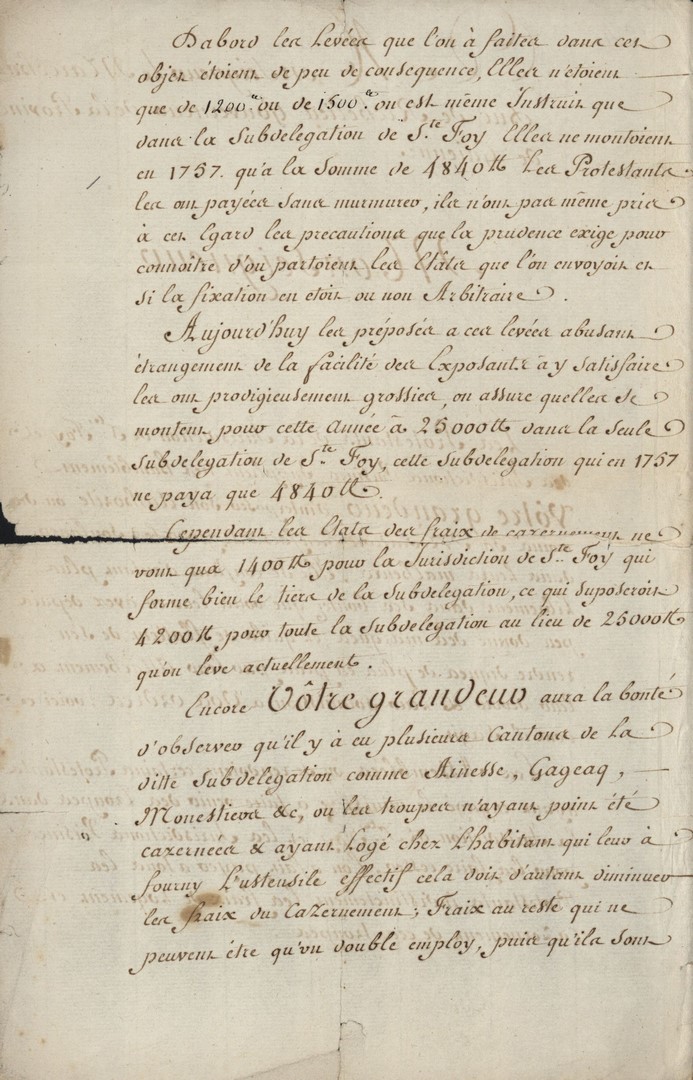 Dabord les Levées que l'on à faites dans cet
objet étoient de peu de consequence, Elles n'étoient
que de 1200.tt ou de 1500.tt on est même Instruit que
dans la Subdelegation de S.te Foy Elles ne montoient
en 1757. qu'a la Somme de 4840tt Les Protestants
les ont payées sans murmurer, ils n'ont pas même pris
à cet Egard les precautions que la prudence exige pour
connoitre d'ou partoient les Etats que l'on envoyoit et
si la fixation en etoit ou non Arbitraire.
Aujourd'huy les préposés a ces levées abusant
étrangement de la facilité des Exposants à y satisfaire
les ont prodigieusement grossies, on assure quelles se
montent pour cette Année à 25000tt dans la seule
Subdelegation de S.te Foy, cette Subdelegation qui en 1757
ne paya que 4840tt.
Cependant les Etats des fraix de cazernement ne
vont qua 1400tt pour la Jurisdiction de S.te Foy qui
forme bien le tiers de la Subdelegation, ce qui suposeroit
4200tt pour toute la Subdelegation au lieu de 25000tt
qu'on leve actuellement.
Encore Vôtre grandeur aura la bonté
d'observer qu'il y à eu plusieurs Cantons de La
ditte Subdelegation comme Ainesse, Gageaq,
Monestiers &c, ou les troupes n'ayant point été
cazernées & ayant Logé chez L'habitant qui leur à
fourny L'ustensile effectif cela doit d'autant diminuer
les fraix du Cazernement; Fraix au reste qui ne
peuvent être qu'un double employ, puis qu'ils sont